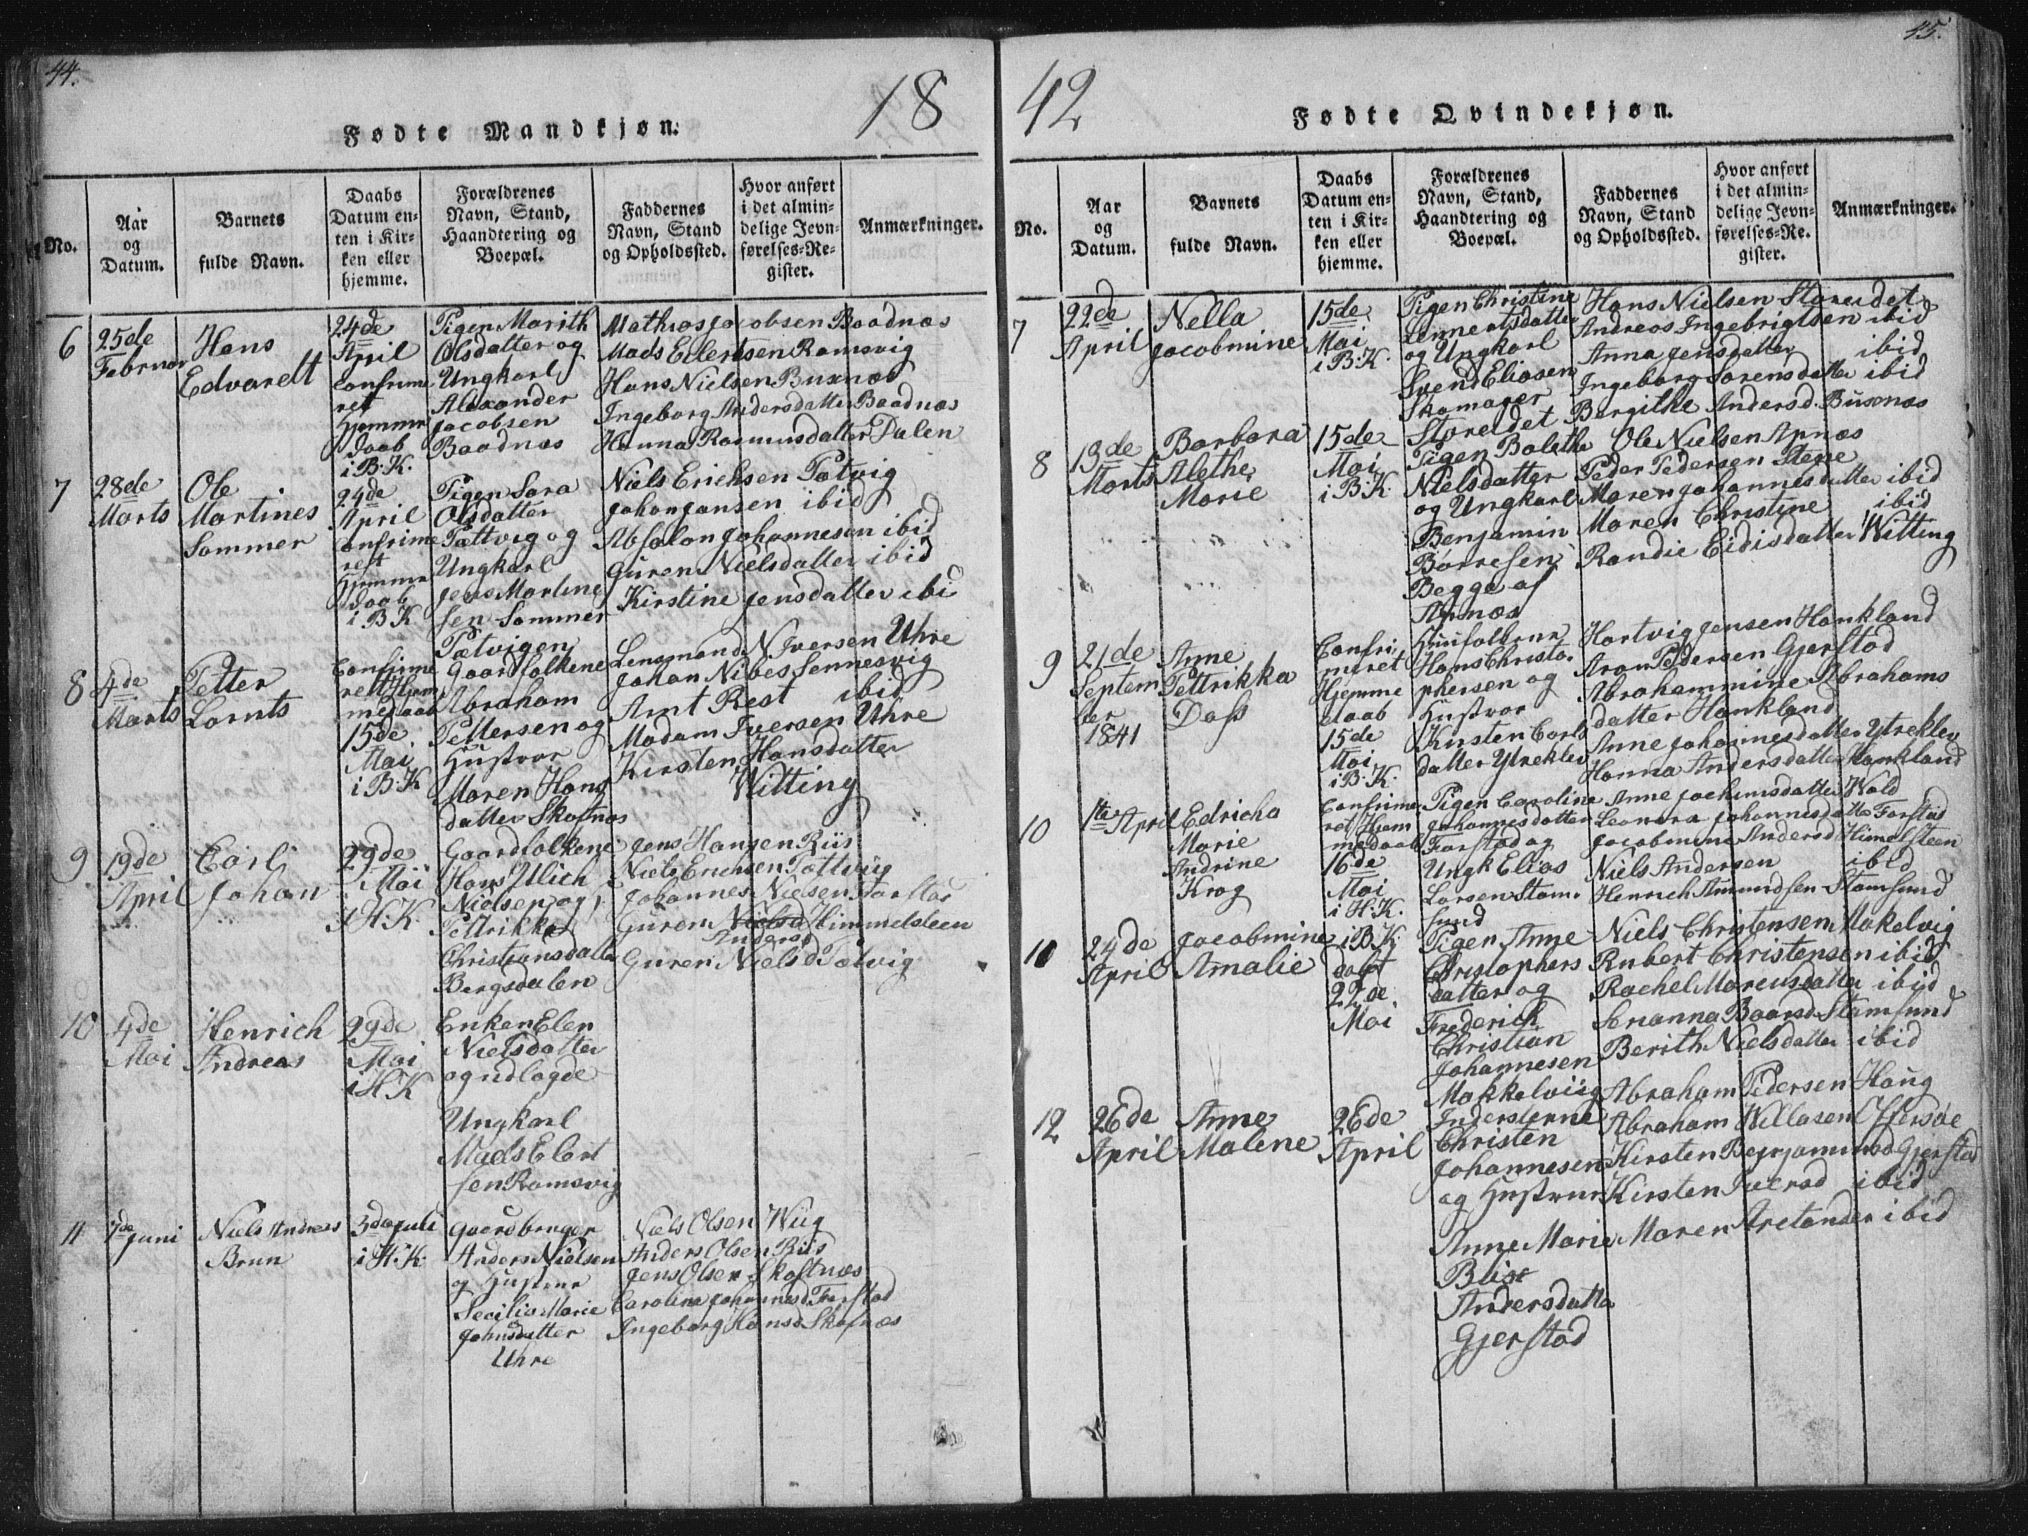 44.
18
Fødte Mandkjøn.
No.
Aar og Datum.
Barnets fulde Navn.
Daabs Datum enten i Kirken eller hjemme.
Forældrenes Navn, Stand, Haandtering og Boepæl.
Faddernes Navn, Stand og Opholdssted.
Hvor anført i det almindelige Jevnførelses-Register.
Anmærkninger.
6
25de
Februar
Hans
Edvardt
24de
April
Confirme
ret
Hjemme
daab
i B. K.
Pigen Marith
Olsdatter og
Ungkarl
Alexander
Jacobsen
Baadnæs
Mathias Jacobsen Baadnæs
Mads Eilertsen Ramsvig
Hans Nielsen Buxnæs
Ingeborg Andersdatter Baadnæs
Hanna Rasmusdatter Dalen
7
28de
Marts
Ole
Martines
Sommer
24de
April
Confirme
ret
Hjemme
daab
i B K
Pigen Sara
Olsdatter
Tættvig og
Ungkarl
Jens Martine
sen Sommer
Tætvigen
Niels Ericksen Tætvig
Johan Jansen ibid
Absalon Johannesen ibid
Guren Nielsdatter ibid
Kirstine Jensdatter ibi
8
4de
Marts
Petter
Lornts
Confirme
ret Hjem
medaab
15de
Mai
i B. K
Gaardfolkene
Abraham
Pettersen og
Hustror
Maren Hans
datter Skafnæs
Lensmand N Iversen Uhre
Johan Nibes Sennesvig
Arnt Rest ibid
Madam Iversen Uhre
Kirsten Hansdatter
Witting
9
19de
April
Carl
Johan
29de
Mai
i H. K.
Gaardfolkene
Hans Ulich
Nielsen og
Pettrikke
Christiansdatte
Bergsdalen
Jens Hansen Riis
Niels Ericksen Tættviig
Johannes Nielsen Farstad
Guren Nielsd Himmelsteen
Andersd
Guren Niels d Tætvig
10
4de
Mai
Henrich
Andreas
29de
Mai
i H. K
Enken Elen
Nielsdatter
og udlagde
Ungkarl
Mads Elert
sen Ramsvig
11
7de Juni
Niels Andreas
Brun
3de Juli
i H. K.
Gaardbruger
Anders Nielsen
og Hustrue
Secilia Marie
Johnsdatter
Uhre
Niels Olsen Wiig
Anders Olsen Riis
Jens Olsen Skaftnæs
Caroline Johannesd Farstad
Ingeborg Hansd Skafnæs
45.
42
Fødte Qvindekjøn.
No.
Aar og Datum.
Barnets fulde Navn.
Daabs Datum enten i Kirken eller hjemme.
Forældrenes Navn, Stand, Haandtering og Boepæl.
Faddernes Navn, Stand og Opholdssted.
Hvor anført i det almindelige Jevnførelses-Register.
Anmærkninger.
7
22de
April
Nella
Jacobmine
15de
Mai
i B. K.
Pigen Christine
Lennertsdatter
og Ungkarl
Svend Eliasen
Skomager
Storeidet
Hans Nielsen Storeidet
Andreas Ingebrigtsen ibid
Anna Jensdatter ibid
Ingeborg Sørensdatter ibid
Bergithe Andersd. Buxnæs
8
13de
Marts
Barbara
Alethe
Marie
15de
Mai
i B. K
Pigen Bolethe
Nielsdatter
og Ungkarl
Benjamin
Børresen
Begge af
Apnæs
Ole Nielsen Apnæs
Peder Pedersen Stene
Maren Johannesdatter ibid
Maren Christine ibid
Randie Eidisdatter Witting
9
21de
Septem
ber
1841
Anne
Pettrikka
Dass
Confir
meret
Hjemme
daab
15de
Mai
i B. K.
Huusfolkene
Hans Christo
phersen og
Hustror
Kirsten Carls
datter Ytreklev
Hartvig Jensen Hankland
Aron Pedersen Gjerstad
Abrahammine Abrahams
datter Hankland
Anne Johannesdatter Ytreklev
Hanna Andersdatter Hankland
10
1te April
Edricha
Marie
Andrine
Krog
Confirme
ret Hjem
medaab
16de
Mai
i H. K.
Pigen Caroline
Johannesdatter
Farstad og
Ungk Elias
Larsen Stam
sund
Anne Jochumsdatter Wold
Leonora Johannesdatte Farstad
Jacobmine Andersd Himelsteen
Niels Andersen ibid
Henrich Amundsen Stamsund
11
24de
April
Jacobmine
Amalie
i B. K.
døbt
22de
Mai
Pigen Anne
Christophers
datter og
Frederich
Christian
Johannesen
Makkelviig
Niels Christensen Makelvig
Rubert Christensen ibid
Rachel Marcusdatter ibid
Sønanna Baardsd Stamsund
Berith Nielsdatter ibid
12
26de
April
Anne
Malene
26de
April
Indersterne
Christen
Johannesen
og Hustrue
Anne Marie
Blix
Andersdatte
Gjerstad
Abraham Pedersen Haug
Abraham Willasen Offersøe
Kirsten Benjaminsd Gjerstad
Kirsten Iversd ibid
Maren Aretander ibid